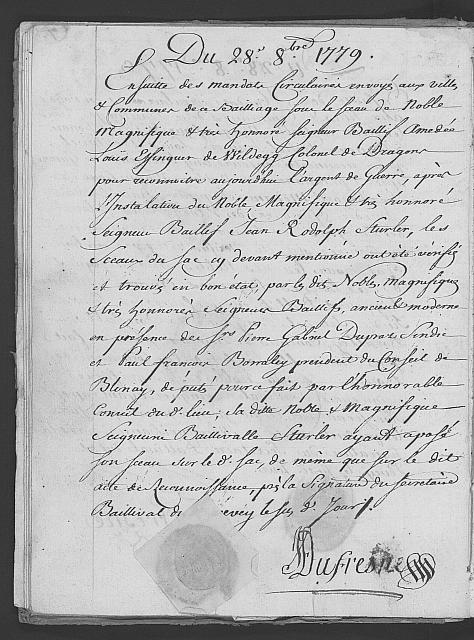 Du 28e 8bre 1779.
Ensuitte des mandats Circulaires envoyés aux villes
& Communes de ce Bailliage sous le sceau du Noble
Magnifique & très honnoré seigneur Baillif Amedée
Louis Effinguer de Wildegg Colonel de Dragons
pour reconnoitre aujourdhuy l'argent de Guerre, après
l'Instalation du Noble Magnifique & très honnoré
Seigneur Baillif Jean Rodolph Sturler, les
Sceaux du sac cy devant mentionné ont été vérifiés
et trouvés en bon état, par les dits Nobles, magnifiques
& très honnorés Seigneurs Baillifs, ancien & moderne
en présence des Srs Pierre Gabriel Dupraz Sindic
et Paul françois Borralley président du Conseil de
Blonay, députés pour ce fait par l'honnorable
Conseil du dt lieu; sa ditte Noble & Magnifique
Seigneurie Baillivalle Sturler ayant aposé
son sceau sur le dt sac, de même que sur le dit
acte de Reconnoissance, près la Signature du secretaire
Baillival de Vevey les dt Jour s.
Dufresne